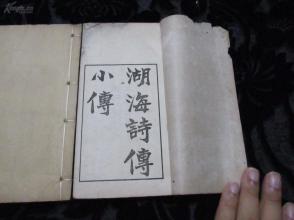 湖海詩傳
小傳